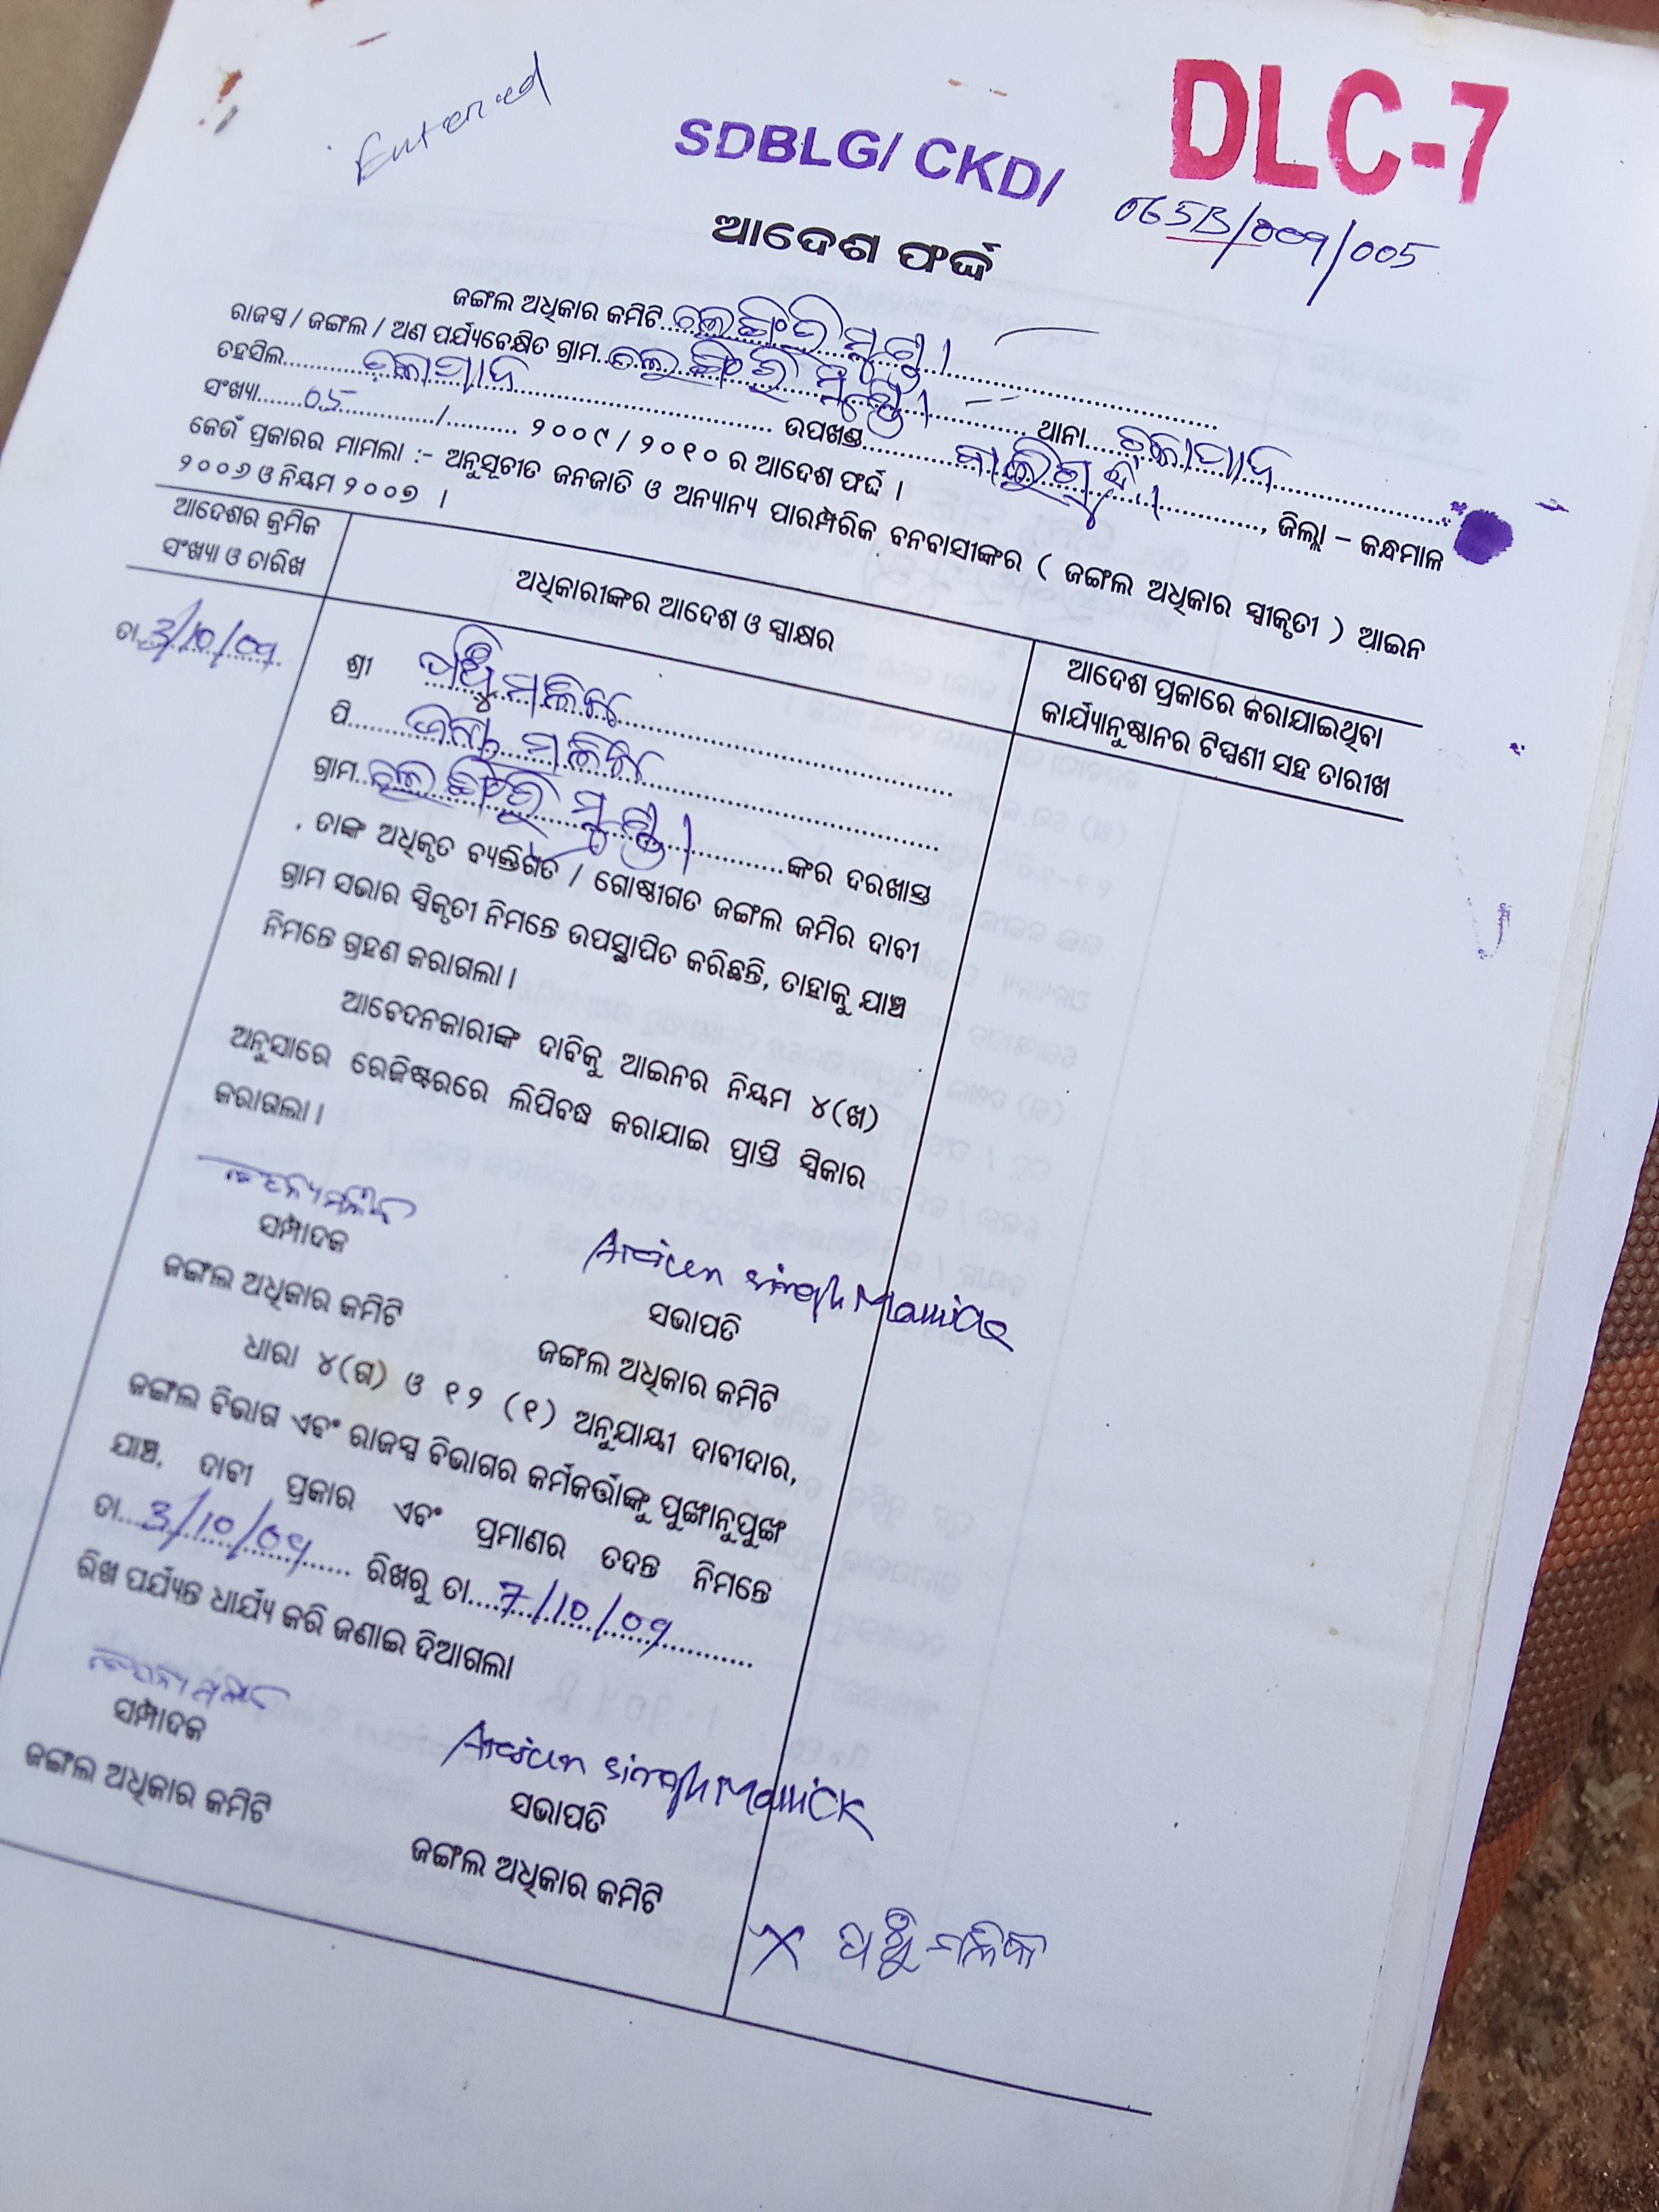 Entered
DLC-7
SDBLG/ CKD/
065B/009/005
ଆଦେଶ ଫର୍ଦ୍ଦ
ଜଙ୍ଗଲ ଅଧିକାର କମିଟି
ରାଜସ୍ୱ / ଜଙ୍ଗଲ / ଅଣ ପର୍ଯ୍ୟବେକ୍ଷିତ ଗ୍ରାମ ଥାନା ଚକାପାଦ
ତହସିଲ ଚକାପାଦ ଉପଖଣ୍ଡ ବାଲିଗୁଡା, ଜିଲ୍ଲା – କନ୍ଧମାଳ
ସଂଖ୍ୟା 05 / ୨୦୦୯ / ୨୦୧୦ ର ଆଦେଶ ଫର୍ଦ୍ଦ ।
କେଉଁ ପ୍ରକାରର ମାମଲା :- ଅନୁସୂଚୀତ ଜନଜାତି ଓ ଅନ୍ୟାନ୍ୟ ପାରମ୍ପରିକ ବନବାସୀଙ୍କର ( ଜଙ୍ଗଲ ଅଧିକାର ସ୍ୱୀକୃତୀ ) ଆଇନ
୨୦୦୬ ଓ ନିୟମ ୨୦୦୭ ।
ଆଦେଶର କ୍ରମିକ
ସଂଖ୍ୟା ଓ ତାରିଖ
ଅଧିକାରୀଙ୍କର ଆଦେଶ ଓ ସ୍ୱାକ୍ଷର
ଆଦେଶ ପ୍ରକାରେ କରାଯାଇଥିବା
କାର୍ଯ୍ୟାନୁଷ୍ଠାନର ଟିପ୍ପଣୀ ସହ ତାରୀଖ
ତା 3/10/09
ଶ୍ରୀ ପଞ୍ଚୁ ମଲିକ
ପି ମଲିକ
ଗ୍ରାମ ଙ୍କର ଦରଖାସ୍ତ
, ତାଙ୍କ ଅଧିକୃତ ବ୍ୟକ୍ତିଗତ / ଗୋଷ୍ଠୀଗତ ଜଙ୍ଗଲ ଜମିର ଦାବୀ
ଗ୍ରାମ ସଭାର ସ୍ୱିକୃତୀ ନିମନ୍ତେ ଉପସ୍ଥାପିତ କରିଛନ୍ତି, ତାହାକୁ ଯାଞ୍ଚ
ନିମନ୍ତେ ଗ୍ରହଣ କରାଗଲା ।
ଆବେଦନକାରୀଙ୍କ ଦାବିକୁ ଆଇନର ନିୟମ ୪(ଖ)
ଅନୁସାରେ ରେଜିଷ୍ଟରରେ ଲିପିବଦ୍ଧ କରାଯାଇ ପ୍ରାପ୍ତି ସ୍ୱିକାର
କରାଗଲା ।
ସମ୍ପାଦକ
ଜଙ୍ଗଲ ଅଧିକାର କମିଟି
Arjun singh Mallick
ସଭାପତି
ଜଙ୍ଗଲ ଅଧିକାର କମିଟି
ଧାରା ୪(ଗ) ଓ ୧୨ (୧) ଅନୁଯାୟୀ ଦାବୀଦାର,
ଜଙ୍ଗଲ ବିଭାଗ ଏବଂ ରାଜସ୍ୱ ବିଭାଗର କର୍ମକର୍ତ୍ତାଙ୍କୁ ପୁଙ୍ଖାନୁପୁଙ୍ଖ
ଯାଞ୍ଚ, ଦାବୀ ପ୍ରକାର ଏବଂ ପ୍ରମାଣର ତଦନ୍ତ ନିମନ୍ତେ
ତା 3/10/09 ରିଖରୁ ତା 7/10/09
ରିଖ ପର୍ଯ୍ୟନ୍ତ ଧାର୍ଯ୍ୟ କରି ଜଣାଇ ଦିଆଗଲା
ସମ୍ପାଦକ
ଜଙ୍ଗଲ ଅଧିକାର କମିଟି
Arjun singh Mallick
ସଭାପତି
ଜଙ୍ଗଲ ଅଧିକାର କମିଟି
X ପଞ୍ଚୁ ମଲିକ